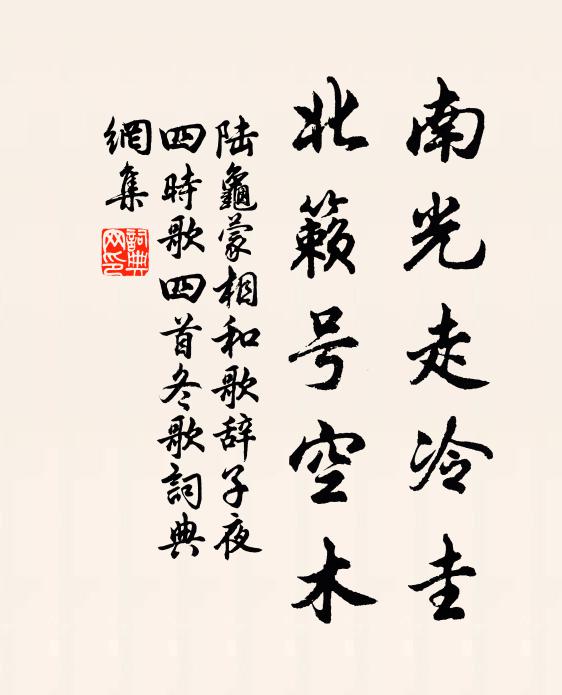 南光走冷圭
北籁号空木
陆龜蒙相和歌辞子夜
四時歌四首冬歌詞典
網集
詞典
网印